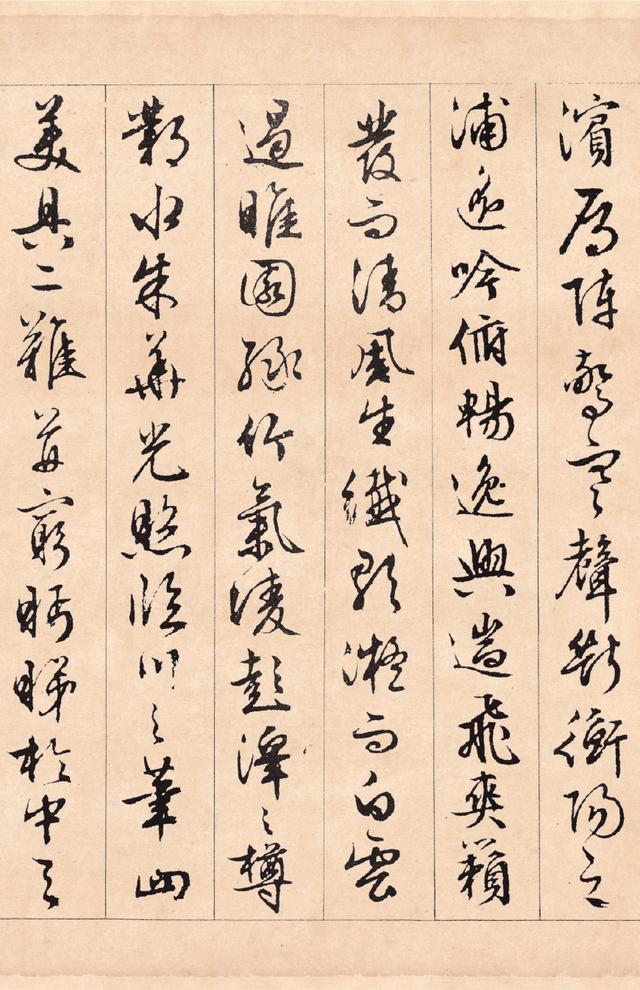 濱鴈陣驚寒聲斷衡陽之
浦遥吟俯暢逸興遄飛爽籟
發而清風生纖歌凝而白雲
遏睢園緑竹氣凌彭澤之樽
鄴水朱華光照臨川之筆四
美具二難并窮眄睇於中天